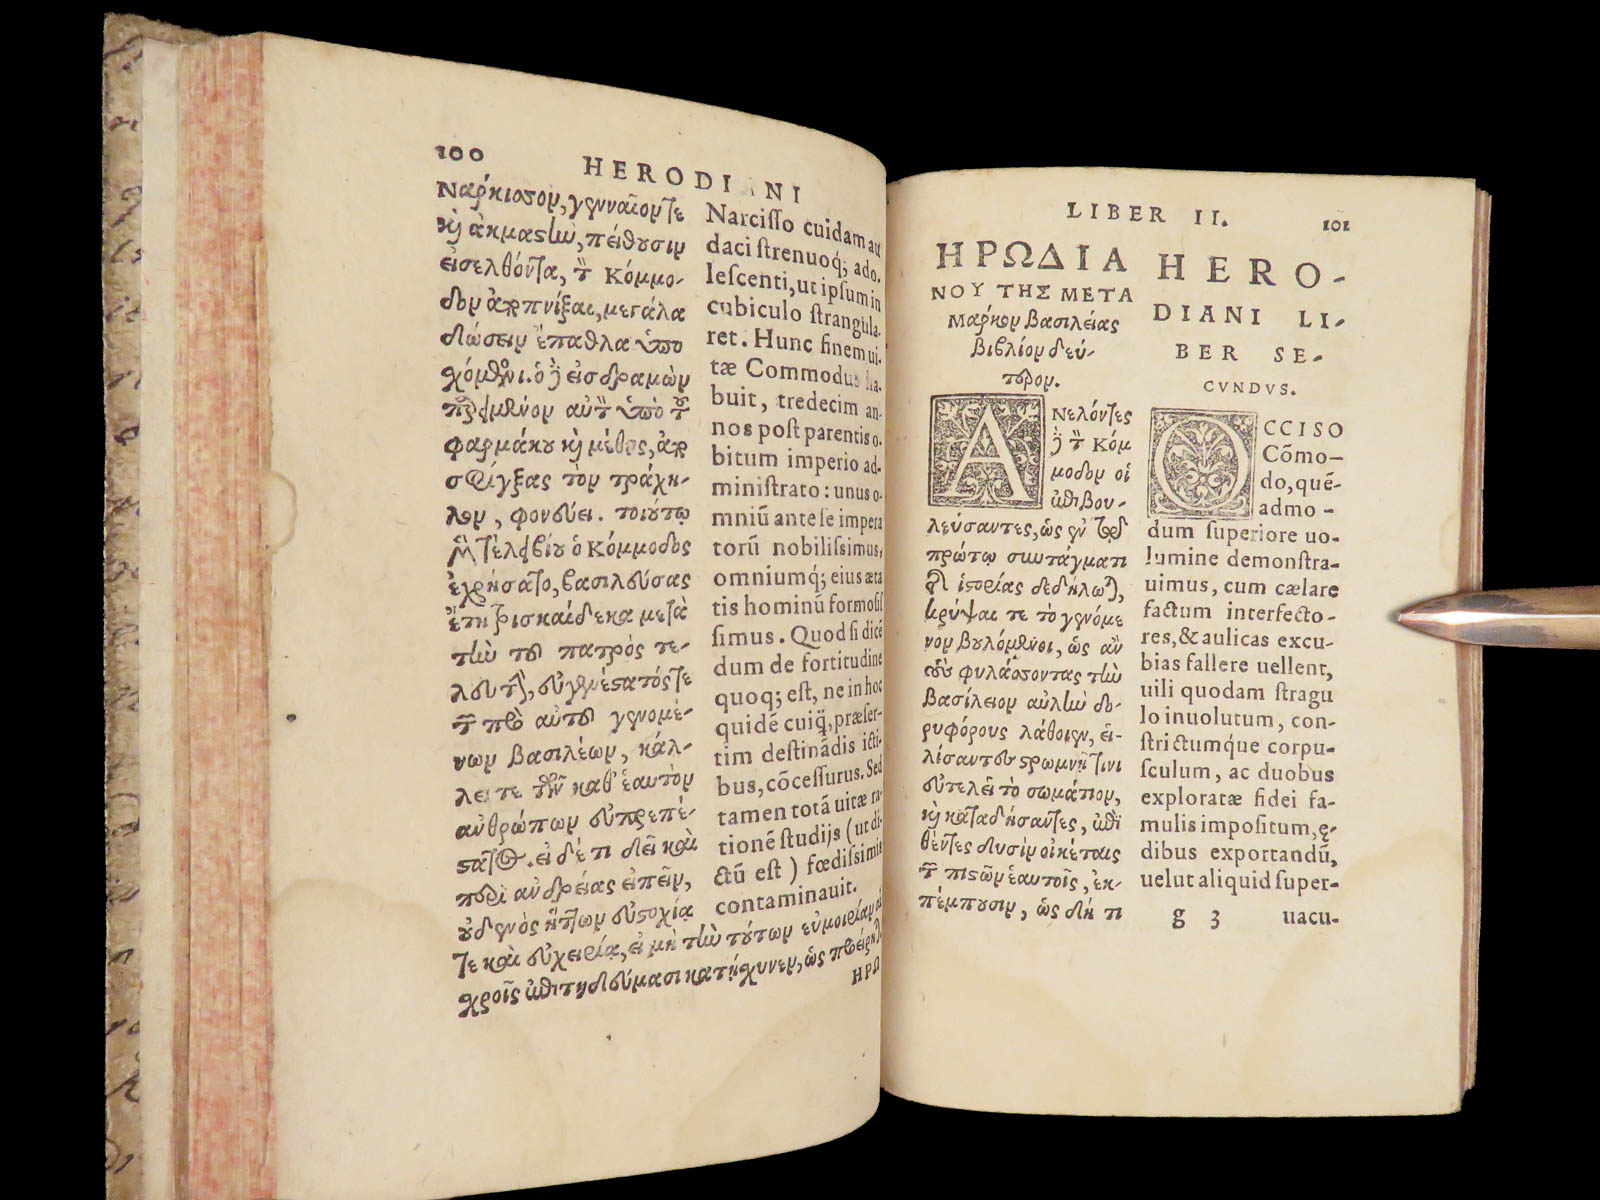 100
HERODIANI
Νάρκισσον, γενναῖόν τε
καὶ ἀκμαστὴν, πείθουσιν
εἰσελθόντα, τὸν Κόμμο-
δον ἀποπνίξαι, μεγάλα
δώσειν ἔπαθλα ὑπο
σχόμενοι. ὁ δὲ εἰσδραμὼν
παρειμένον αὐτὸν ὑπὸ τοῦ
φαρμάκου καὶ μέθης, ἀπο
σφίγξας τὸν τράχη-
λον, φονεύει. τοιούτῳ
μὲν τέλει βίου ὁ Κόμμοδος
ἐχρήσατο, βασιλεύσας
ἔτη τρισκαίδεκα μετὰ
τὴν τοῦ πατρὸς τε-
λευτὴν, εὐγενέστατός τε
τῶν πρὸ αὐτοῦ γενομέ-
νων βασιλέων, κάλ-
λει τε τῶν καθ' ἑαυτὸν
ἀνθρώπων εὐπρεπέ-
στατος. εἰ δέ τι δεῖ καὶ
περὶ ἀνδρείας εἰπεῖν,
οὐδενὸς ἥττων εὐστοχίᾳ
τε καὶ εὐχειρίᾳ, εἰ μὴ τὴν τούτων εὐμοιρίαν αἰ
σχροῖς ἐπιτηδεύμασι κατῄσχυνεν, ὡς
ΗΡΩ
Narcisso cuidam aut
daci strenuoq́; ado-
lescenti, ut ipsum in
cubiculo strangula-
ret. Hunc finem ui-
tæ Commodus ha-
buit, tredecim an-
nos post parentis o-
bitum imperio ad-
ministrato: unus o-
mniũ ante se impera
torũ nobilissimus,
omniumq́; eius æta
tis hominũ formosis
simus. Quod si dicẽ
dum de fortitudine
quoq; est, ne in hoc
quidẽ cuiq̃, præser-
tim destinãdis icti-
bus, cõcessurus. Sed
tamen totã uitæ ra-
tionẽ studijs (ut di-
ctũ est) fœdissimis
contaminauit.
LIBER II.
101
ΗΡΩΔΙΑ
ΝΟΥ ΤΗΣ ΜΕΤΑ
Μάρκον βασιλείας
βιβλίον δεύ-
τερον.
ΑΝελόντες
δὲ τὸν Κόμ
μοδον οἱ
ἐπιβου-
λεύσαντες, ὡς ἐν τῷ
πρώτῳ συντάγματι
τῆς ἱστορίας δεδήλωται,
κρύψαι τε τὸ γενόμε
νον βουλόμενοι, ὡς ἂν
τοὺς φυλάσσοντας τὴν
βασίλειον αὐλὴν δο-
ρυφόρους λάθοιεν, εἱ-
λίσαντες στρωμνῇ τινι
εὐτελεῖ τὸ σωμάτιον,
καὶ καταδήσαντες, ἐπι
θέντες δυσὶν οἰκέταις
τῶν πιστῶν ἑαυτοῖς, ἐκ-
πέμπουσιν, ὡς δή τι
HERO-
DIANI LI-
BER SE-
CVNDVS.
OCCISO
Cõmo-
do, quẽ-
admo-
dum superiore uo-
lumine demonstra-
uimus, cum cælare
factum interfecto-
res, & aulicas excu-
bias fallere uellent,
uili quodam stragu
lo inuolutum, con-
strictumq́ue corpu-
sculum, ac duobus
exploratæ fidei fa-
mulis impositum, ę-
dibus exportandũ,
uelut aliquid super-
g 3
uacu-